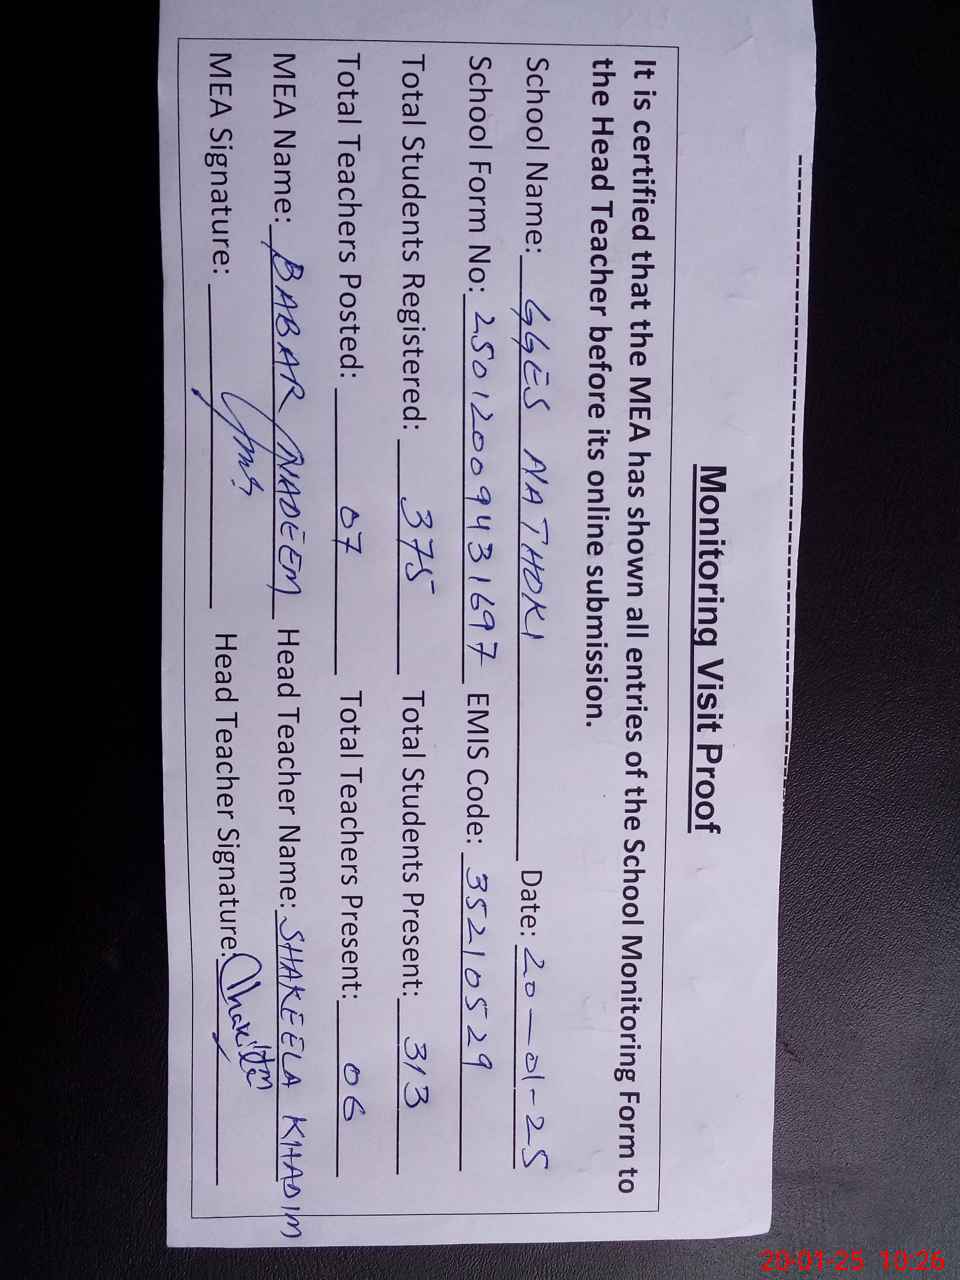 Monitoring Visit Proof
It is certified that the MEA has shown all entries of the School Monitoring Form to
the Head Teacher before its online submission.
School Name: GGES NATHOKI Date: 20-01-25
School Form No: 2501200943 1697 EMIS Code: 35210529
Total Students Registered: 375 Total Students Present: 313
Total Teachers Posted: 07 Total Teachers Present: 06
MEA Name: BABAR NADEEM Head Teacher Name: SHAKEELA KHADIM
MEA Signature: Head Teacher Signature:
20-01-25 10:26